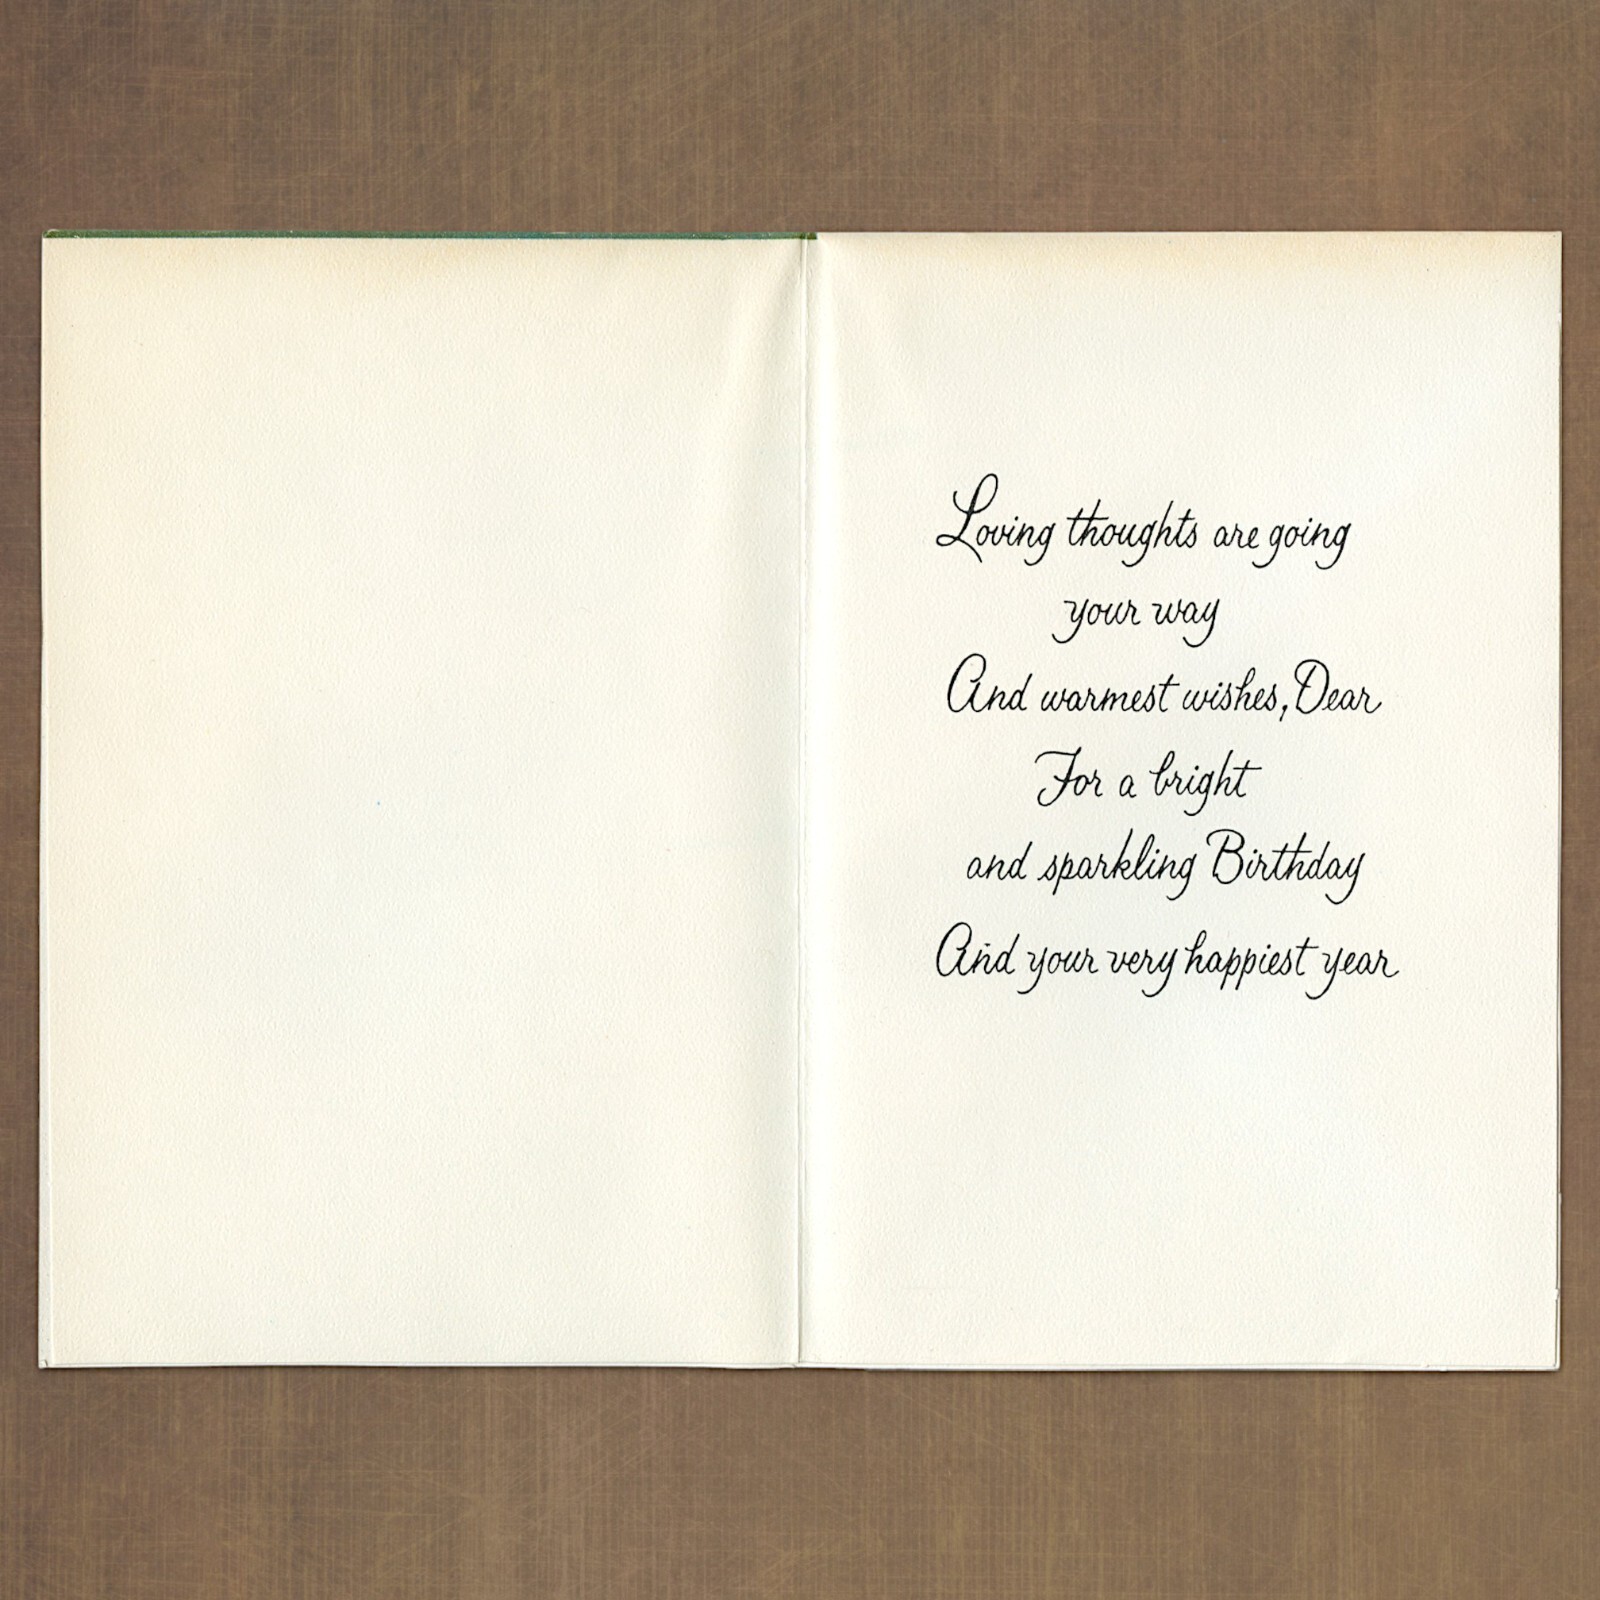 Loving thoughts are going
your way
And warmest wishes, Dear
For a bright
and sparkling Birthday
And your very happiest year